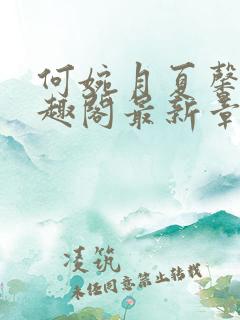 何婉月夏馨
趣阁最新章
凌筑
未经同意禁止转载